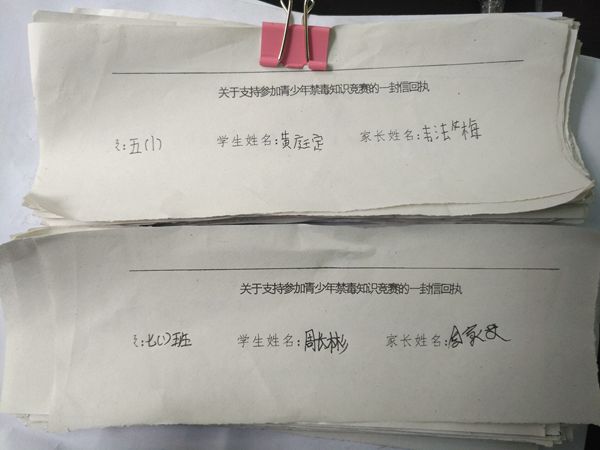 关于支持参加青少年禁毒知识竞赛的一封信回执
:五(1) 学生姓名:黄庭定 家长姓名:
关于支持参加青少年禁毒知识竞赛的一封信回执
:七(1)班 学生姓名:周长彬 家长姓名: